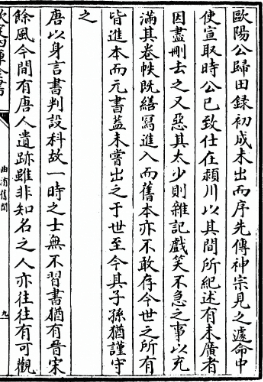 歐陽公歸田錄初成未出而序先傳神宗見之遽命中
使宣取時公已致仕在潁川以其間所紀述有未廣者
因盡刪去之又惡其太少則雜記戲笑不急之事以充
滿其卷帙既繕寫進入而舊本亦不敢存今世之所有
皆進本而元書蓋未嘗出之于世至今其子孫猶謹守
之
唐以身言書判設科故一時之士無不習書猶有晉宋
餘風今間有唐人遺跡雖非知名之人亦往往有可觀
曲洧舊聞
九